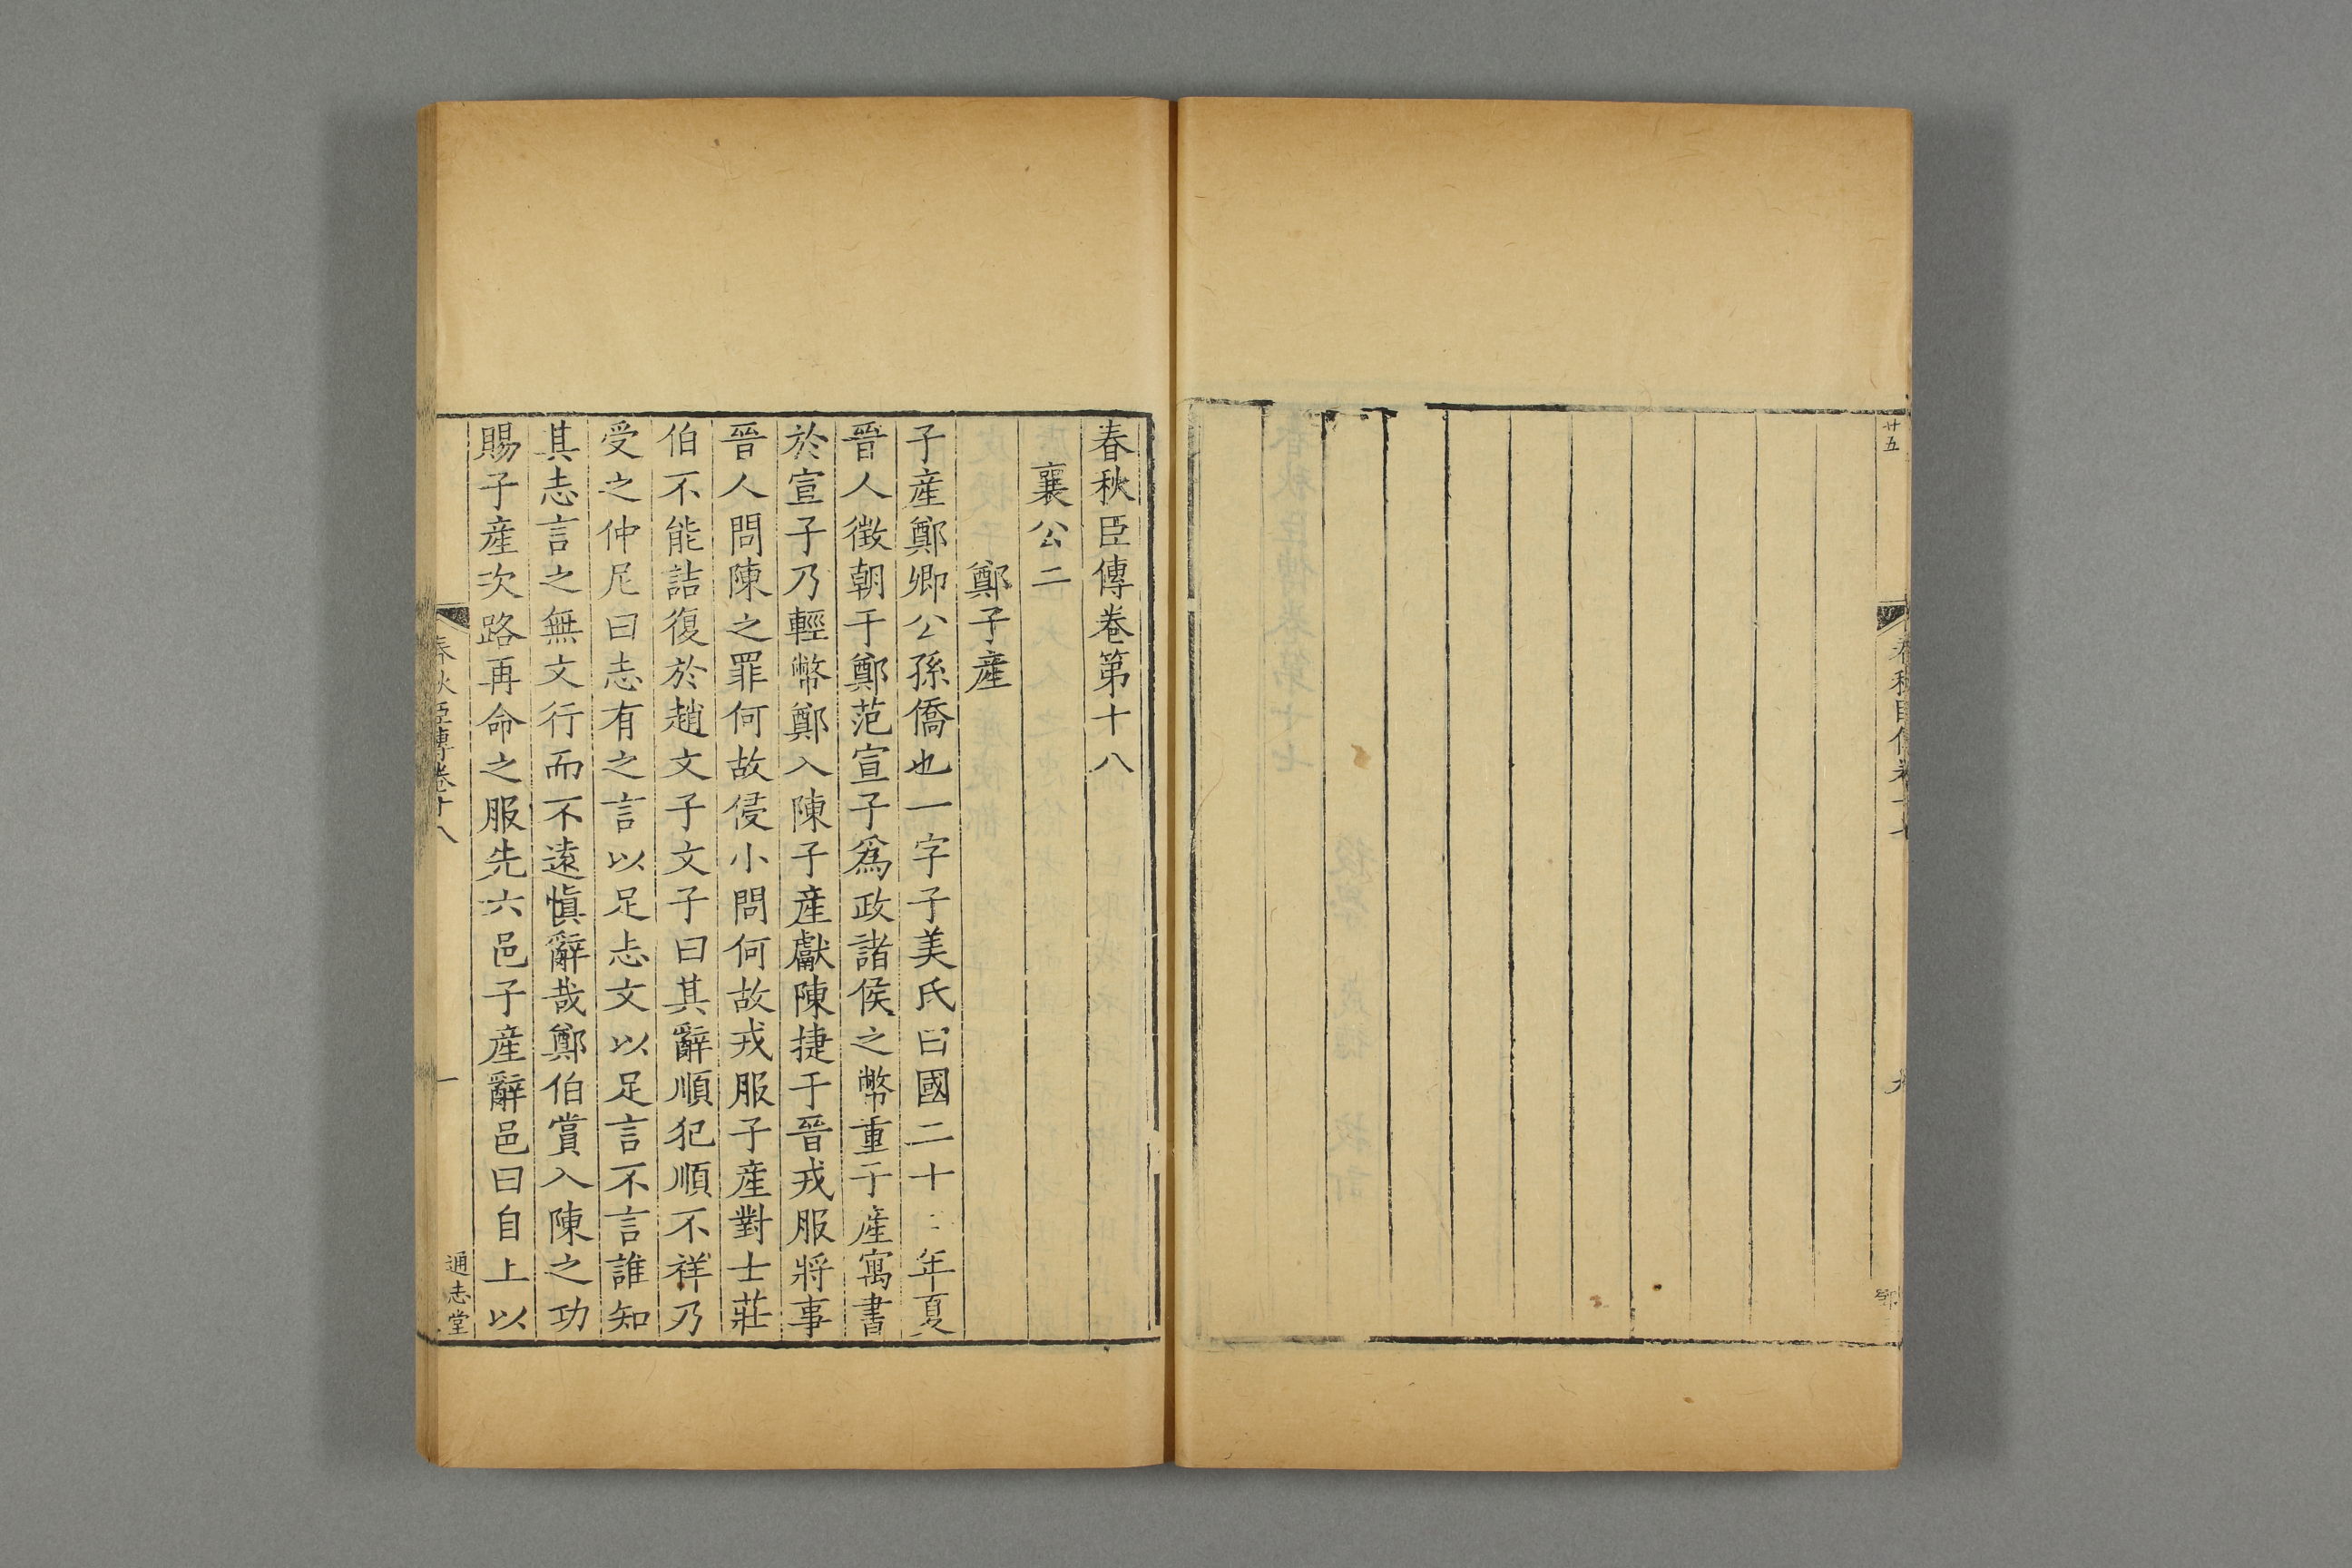 廿五
春秋臣傳卷十七
春秋臣傳卷第十八
襄公二
鄭子産
子産鄭卿公孫僑也一字子美氏曰國二十年夏
晉人徴朝于鄭范宣子爲政諸侯之幣重子産寓書
於宣子乃輕幣鄭入陳子産獻陳捷于晉戎服將事
晉人問陳之罪何故侵小問何故戎服子産對士莊
伯不能詰復於趙文子文子曰其辭順犯順不祥乃
受之仲尼曰志有之言以足志文以足言不言誰知
其志言之無文行而不遠慎辭哉鄭伯賞入陳之功
賜子産次路再命之服先六邑子産辭邑曰自上以
春秋臣傳卷十八
一
通志堂